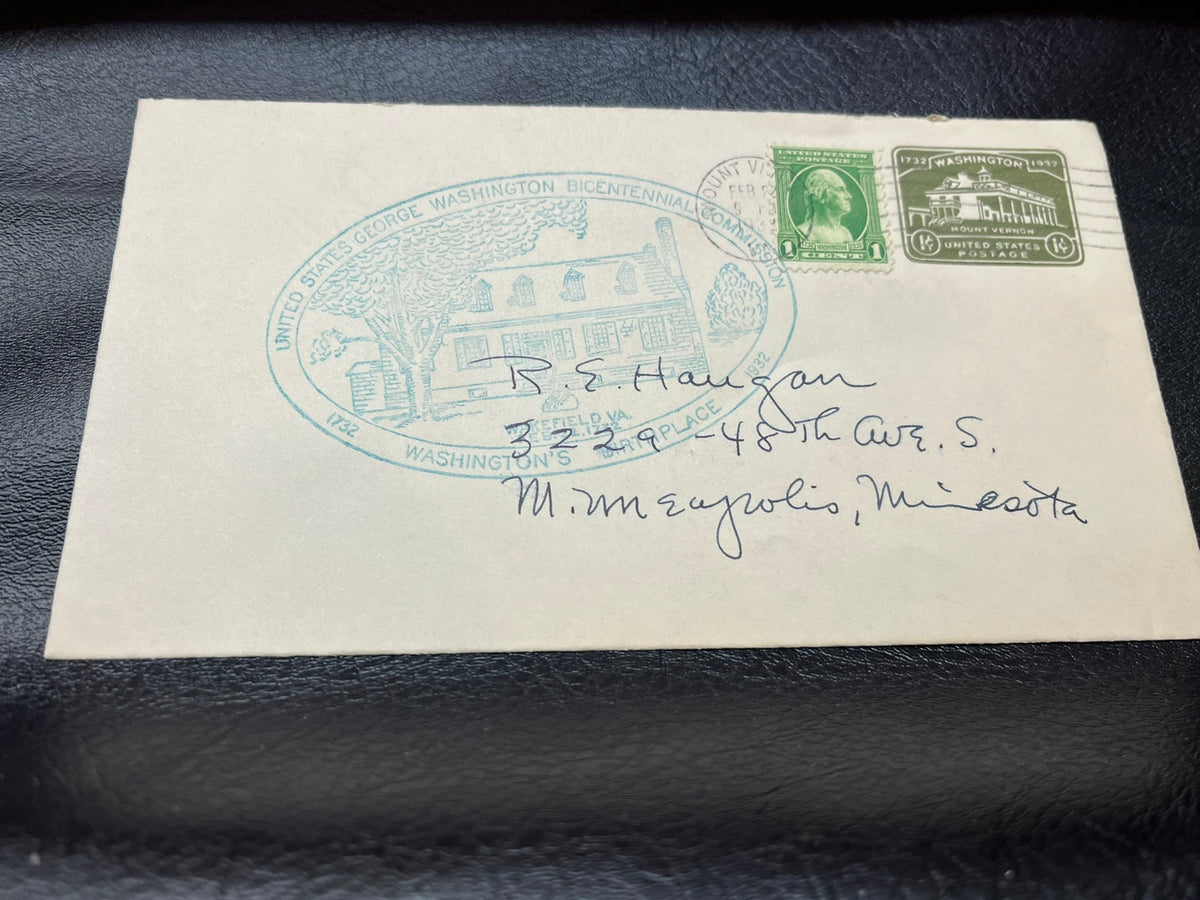 UNITED STATES GEORGE WASHINGTON BICENTENNIAL COMMISSION
1732
1932
WAKEFIELD, VA.
WASHINGTON'S BIRTHPLACE
MOUNT
FEB 22
UNITED STATES
POSTAGE
1 WASHINGTON 1
CENT
1732 WASHINGTON 1932
MOUNT VERNON
1¢ UNITED STATES 1¢
POSTAGE
R. E. Haugan
3229 - 48Th Ave. S.
Minneapolis, Minnesota